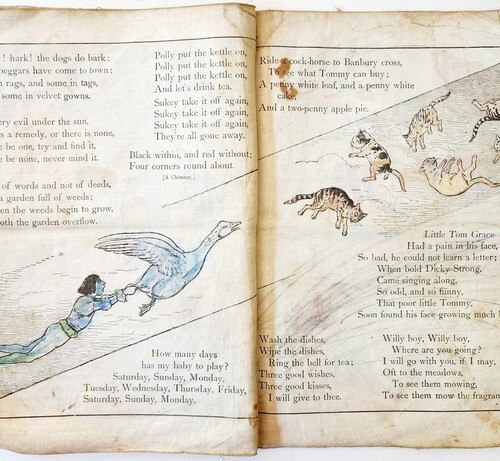 ! hark! the dogs do bark;
beggars have come to town;
n rags, and some in tags,
some in velvet gowns.
ery evil under the sun,
s a remedy, or there is none,
e be one, try and find it,
e be none, never mind it.
of words and not of deeds,
a garden full of weeds;
en the weeds begin to grow,
oth the garden overflow.
Polly put the kettle on,
Polly put the kettle on,
Polly put the kettle on,
And let's drink tea.
Sukey take it off again,
Sukey take it off again,
Sukey take it off again,
They're all gone away.
Black within, and red without;
Four corners round about.
[A Chimney.]
How many days
has my baby to play?
Saturday, Sunday, Monday,
Tuesday, Wednesday, Thursday, Friday,
Saturday, Sunday, Monday.
Ride a cock-horse to Banbury cross,
To see what Tommy can buy;
A penny white loaf, and a penny white
cake,
And a two-penny apple pie.
Little Tom Grace
Had a pain in his face,
So bad, he could not learn a letter;
When bold Dicky Strong,
Came singing along,
So odd, and so funny,
That poor little Tommy,
Soon found his face growing much b
Wash the dishes,
Wipe the dishes,
Ring the bell for tea;
Three good wishes,
Three good kisses,
I will give to thee.
Willy boy, Willy boy,
Where are you going?
I will go with you, if I may,
Oft to the meadows,
To see them mowing,
To see them mow the fragran